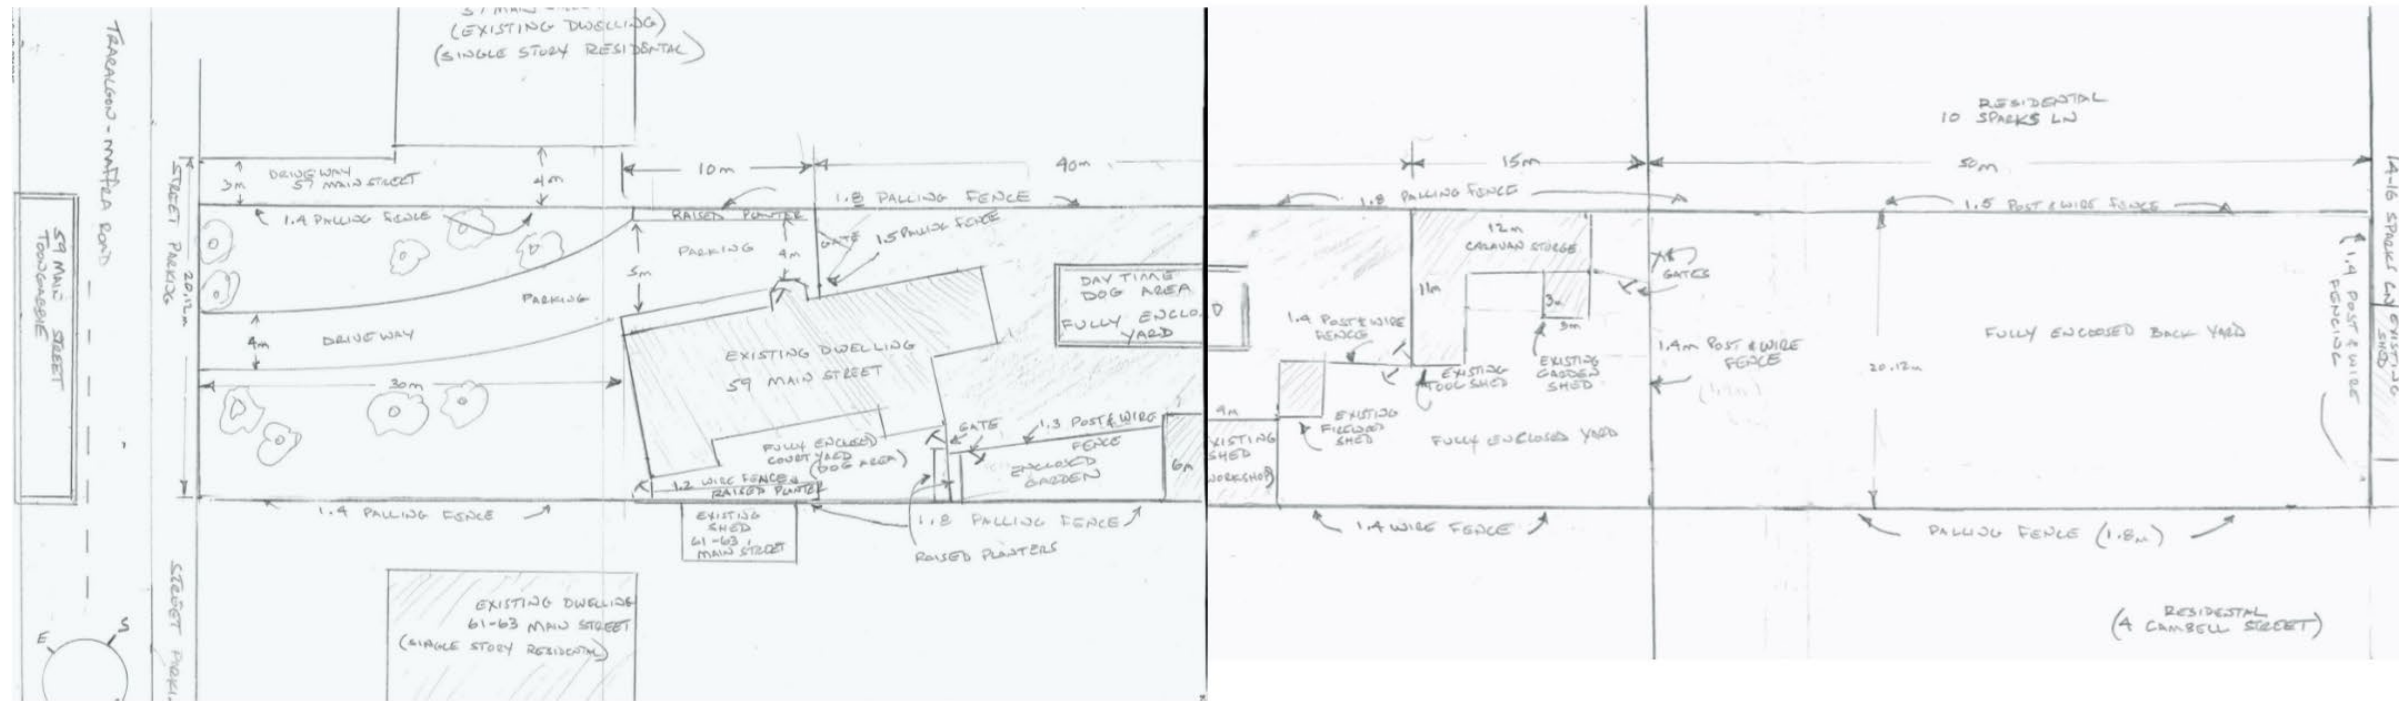 57 MAIN
(EXISTING DWELLING)
(SINGLE STORY RESIDENTAL)
TRARALGON - MAFFRA ROAD
59 MAIN STREET
TOONGABBIE
STREET PARKING
20.12m
3m
DRIVEWAY
57 MAIN STREET
4m
1.4 PALLING FENCE
10m
40m
1.8 PALLING FENCE
RAISED PLANTER
PARKING
5m
4m
GATE
1.5 PALLING FENCE
PARKING
4m
DRIVEWAY
30m
EXISTING DWELLING
59 MAIN STREET
DAY TIME
DOG AREA
FULLY ENCLO
YARD
D
FULLY ENCLOSED
COURTYARD
(DOG AREA)
GATE
1.3 POST & WIRE
FENCE
ENCLOSED
GARDEN
6m
1.2 WIRE FENCE &
RAISED PLANTER
1.4 PALLING FENCE
EXISTING
SHED
61-63
MAIN STREET
1.8 PALLING FENCE
RAISED PLANTERS
EXISTING DWELLING
61-63 MAIN STREET
(SINGLE STORY RESIDENTAL)
STREET PARKI
E
S
15m
50m
RESIDENTAL
10 SPARKS LN
1.8 PALLING FENCE
1.5 POST & WIRE FENCE
12m
CARAVAN STORGE
11m
3m
3m
GATES
1.4 POST & WIRE
FENCE
EXISTING
TOOL SHED
EXISTING
GARDEN
SHED
1.4m POST & WIRE
FENCE
4m
EXISTING
FIREWOOD
SHED
XISTING
SHED
WORKSHOP)
FULLY ENCLOSED YARD
FULLY ENCLOSED BACK YARD
20.12m
1.4 POST & WIRE
FENCING
14-16 SPARKS LN
EXISTING
SHED
1.4 WIRE FENCE
PALLING FENCE (1.8m)
RESIDENTAL
(4 CAMBELL STREET)